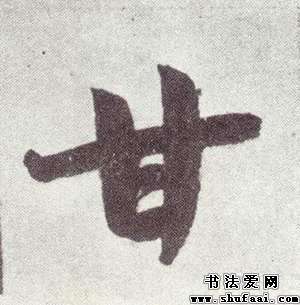 甘
书法爱网
www.shufaai.com